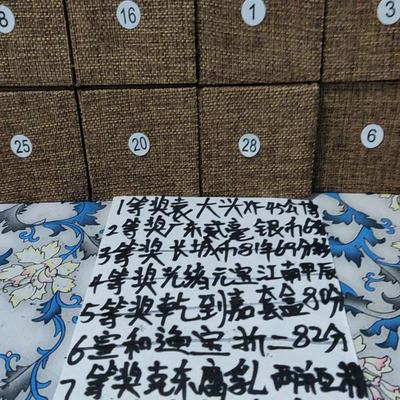 8
16
1
3
25
20
28
6
1等奖袁大头XF45公博
2等奖广东贰毫银币6枚
3等奖长城币81年69分
4等奖光绪元宝江南甲辰
5等奖乾到嘉套盒80分
6宣和通宝折二82分
7等奖克东腐乳两瓶